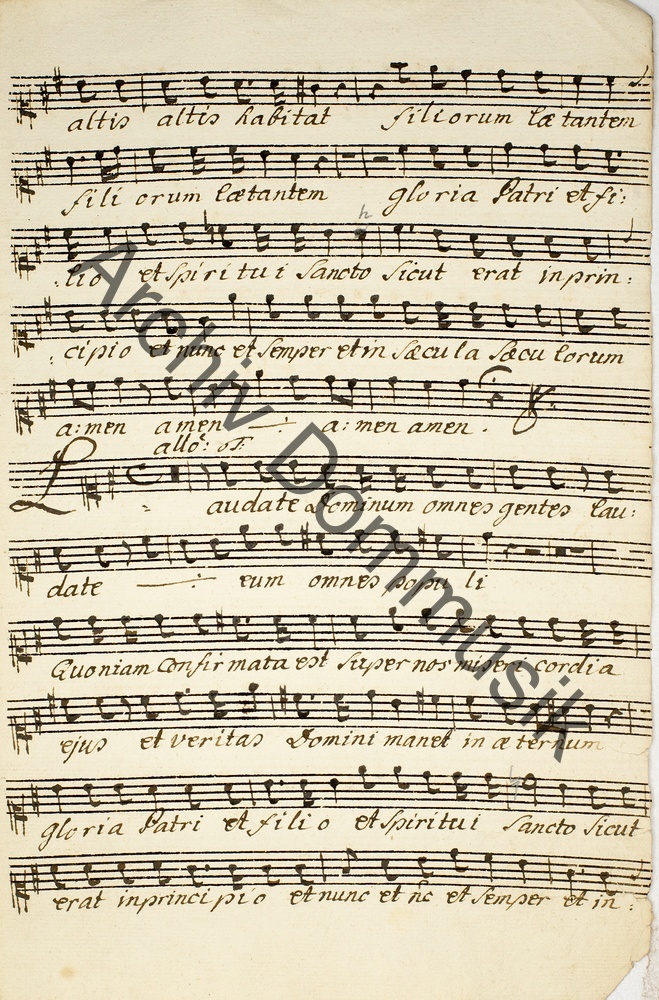 altis altis habitat filiorum lætantem
fili orum lætantem gloria Patri et fi:
h
:lio et Spiri tu i Sancto Sicut erat in prin:
:cipio et nunc et Semper et in Sæcu la Sæcu lorum
a:men amen a:men amen.
allo:
Laudate Dominum omnes gentes lau:
date eum omnes popu li
Quoniam Confir mata est Super nos miseri cordia
ejus et veritas Domini manet in æ ternum
gloria Patri et fili o et Spiritu i Sancto Sicut
erat in princi pi o et nunc et nc et Semper et in:
Archiv Dommusik